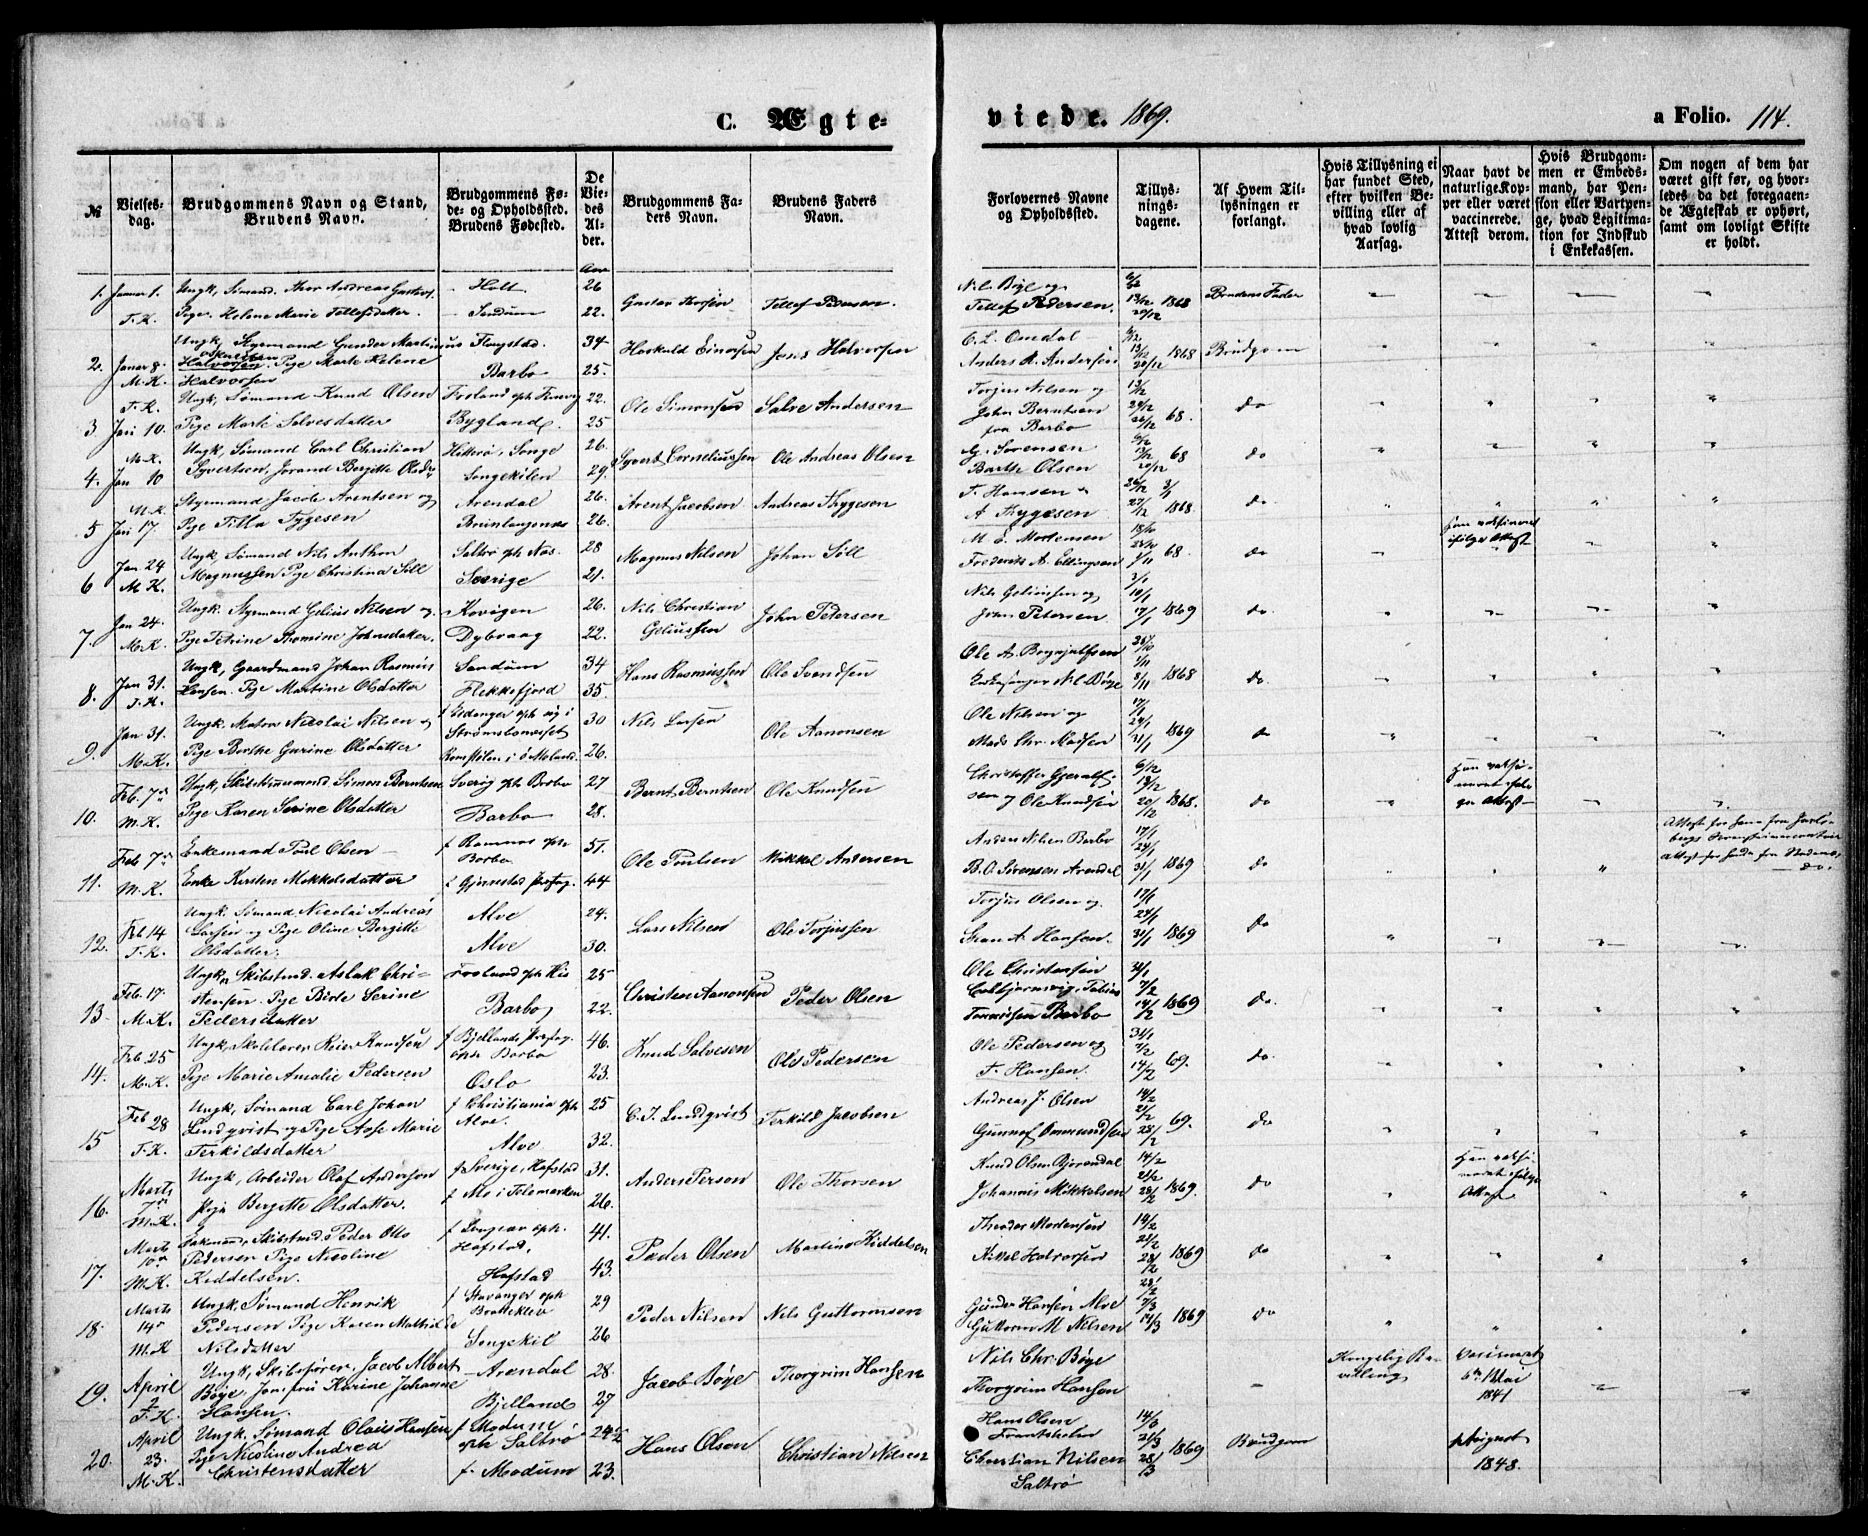 C. Ægte-
viede. 1869.
a Folio. 114.
№
Vielses-dag.
Brudgommens Navn og Stand, Brudens Navn.
Brudgommens Fø-de- og Opholdssted. Brudens Fødested.
De Vie-des Al-der.
Brudgommens Fa-ders Navn.
Brudens Faders Navn.
Forlovernes Navne og Opholdssted.
Tillys-nings-dagene.
Af Hvem Til-lysningen er forlangt.
Hvis Tillysning ei har fundet Sted, efter hvilken Be-villing eller af hvad lovlig Aarsag.
Naar havt de naturlige Kop-per eller været vaccinerede. Attest derom.
Hvis Brudgom-men er Embeds-mand, har Pen-sion eller Vartpen-ge, hvad Legitima-tion for Indskud i Enkekassen.
Om nogen af dem har været gift før, og hvor-ledes da det foregaaen-de Ægteskab er ophørt, samt om lovligt Skifte er holdt.
1. Januar 1. Ungk, Sømand. Thor Andreas Gustavs. Holt 26 Gustav Thorsen Tellef Pedersen. Nil. Bøge og 6/12
T.K. Pige. Helene Marie Tellefsdatter. Sandum 22. Tellef Pedersen. 13/12 20/12 1868 Brudens Fader
2. Januar 8. Ungk, Styrmand Gunder Martinius Flaystad. 34 Haskuld Einarsen Jens Halvorsen C. L. Omdal 6/12
M.K. Halvorsen. Pige Marte Helene Halvorsen Barbo 25. Anders R. Andersen 13/12 20/12 1868 Brudgom
T.K. Ungk, Sømand Knud Olsen Froland oph 22. Ole Simonsen Salve Andersen Torjus Nilsen og 13/12
3 Jan 10. Pige Marte Salvesdatter Bygland. 25 John Berntsen fra Barbo 68. do
M.K. Ungk, Sømand Carl Christian Hitterø, Songe 26. Syvert Corneliussen Ole Andreas Olsen G. Sørensen
4. Jan 10 Syvertsen, Jorand Bergitte Olsdr Songekilen 29. Barthe Olsen 20/12 68 do
M.K. Styrmand Jacob Arentsen og Arendal 26. Arent Jacobsen Andreas Thygesen T. Hansen 26/12 3/1
5 Jan 17. Pige Tilla Tygesen 26. A Thygesen 27/12 1868 do
6 Jan 24 Ungk, Sømand Nils Anthon Saltrø oph Næs. 28 Magnus Nilsen Johan Søll M. E. Mortensen 18/10 25/10
M K. Magnussen Pige Christina Søll Sverige 21. Frederik A. Ellingsen 1/11 68 do
7. Jan 24. Ungk. Styrmand Gelius Nilsen og Kovigen 26. Nils Christian Geliussen John Petersen Nils Geliussen og 3/1 10/1
M.K. Pige Petrine Thomine Johnsdatter. Dybvaag 22. John Petersen 17/1 1869 do
8. Jan 31. Ungk, Gaardmand Johan Rasmus Sandum 34 Hans Rasmussen Ole Svendsen Ole A. Brynjulfsen 25/10 1/11
T.K. Hansen. Pige Martine Olsdatter Flekkefjord 35. Kirkesanger Nil. Bøge 8/11 1868 do
9. Jan 31. Ungk. Matros Nicolai Nilsen og 30 Nils Larsen Ole Aanonsen Ole Nilsen og 17/1 24/1
M.K. Pige Berthe Gurine Olsdatter 26. Mads Chr. Madsen 31/1 1869
10. Feb. 7de Ungk, Skibstømmermand Simon Berntsen Sverig oph Barbo 27 Bernt Berntsen Ole Knudsen Christoffer 6/12 13/12
M.K. Pige Karen Serine Olsdatter Barbo 28. og Ole Knudsen 20/12 1868. do
11. Feb 7de Enkemand Poul Olsen f Ramnæs oph Barbo 51. Ole Poulsen Mikkel Andersen Anders Nilsen Barbo 17/1 24/1
M.K. Enke Kirsten Mikkelsdatter f Gjerrestad Præstg. 44 B. O. Sørensen Arendal 31/1 1869 do
12. Feb 14 Ungk. Sømand. Nicolai Andreas Alve 24. Lars Nilsen Ole Torjussen Torjus Olsen og 17/1 24/1
T.K. Larsen og Pige Oline Bergitte Olsdatter. Alve 30. A Hansen. 31/1 1869 do
13. Feb. 17. Ungk, Skibstmd. Aslak Chri-stensen. Pige Birte Serine Froland oph His 25 Christen Aanonsen Peder Olsen Ole Christensen 31/1 7/2
M.K. Pedersdatter Barbo 22. Tobias Tønnessen Barbo 14/2 1869 do.
14. Feb 25 Ungk, Skolelærer Reier Knudsen f Bjellands Præstg. oph Barbo 46. Knud Salvesen Ole Pedersen Ole Pedersen og 31/1 7/2
M.K. Pige Marie Amalie Pedersen Oslo 23. T. Hansen. 14/2 69. do.
15 Feb 28 Ungk, Sømand Carl Johan f Christiania oph Alve. 25 C. J. Lindqvist Terkild Jacobsen Andreas J. Olsen 14/2 21/2
T.K. Lindqvist og Pige Aase Marie Terkildsdatter Alve 32. Gunnuf Ommundsen 28/2 69. do
16. Marts 7de Ungk, Arbeider Olaf Andersson f Sverige, Hafstad 31. Anders Person Ole Thorsen Knud Olsen Bjorendal 14/2 21/2
M.K. Pige Bergitte Olsdatter. f Mo i Telemarken 26. Johannes Mikkelsen 28/2 1869. do
17. Marts 10de Enkmd, Skibstmd. Peder Otto Pedersen Pige Nicoline f Longsar oph. Hafstad. 41. Peder Olsen Martinus Kiddelsen Theodor Mortensen 14/2 21/2
M.K. Kiddelsen. Hafstad 43. Kittel Halvorsen 28/2 1869 do
18. Marts 14de Ungk. Sømand Henrik f Stavanger oph Brattekleiv 29 Peder Nilsen Nils Guttormsen Gunder Hansen Alve 28/2 7/3
M.K Pedersen Pige Karen Mathilde Nilsdatter Songekil 26 Guttorm M Nilsen 14/3 1869 do
19. April 2 Ungk, Skibsfører, Jacob Albert Arendal 28. Jacob Bøge Thorgrim Hansen Nils Chr. Bøge Kongelig Be-villing Vaccineret 6te Mai 1841
T.K. Bøge. Jomfru Karine Johanne Hansen. Bjelland 27 Thorgrim Hansen
20. April 23. Ungk. Sømand Olaus Hansen f Modum oph Saltrø 24 1/2 Hans Olsen Christian Nilsen Hans Olsen 14/3 21/3
M.K. Pige Nicoline Andrea Christensdatter f. Modum 23. Christian Nilsen Saltrø 28/3 1869 Brudgom August 1848.